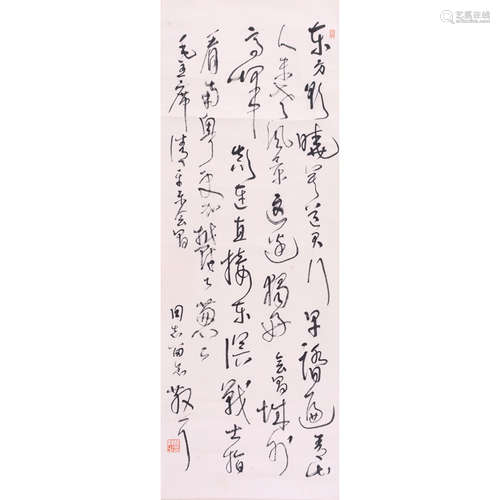 东方欲晓莫道君行早踏遍青山
人未老风景这边独好会昌城外
高峰颠连直接东溟战士指
看南粤更加郁〻葱〻
毛主席清平乐会昌
同志留念
艺狐在线